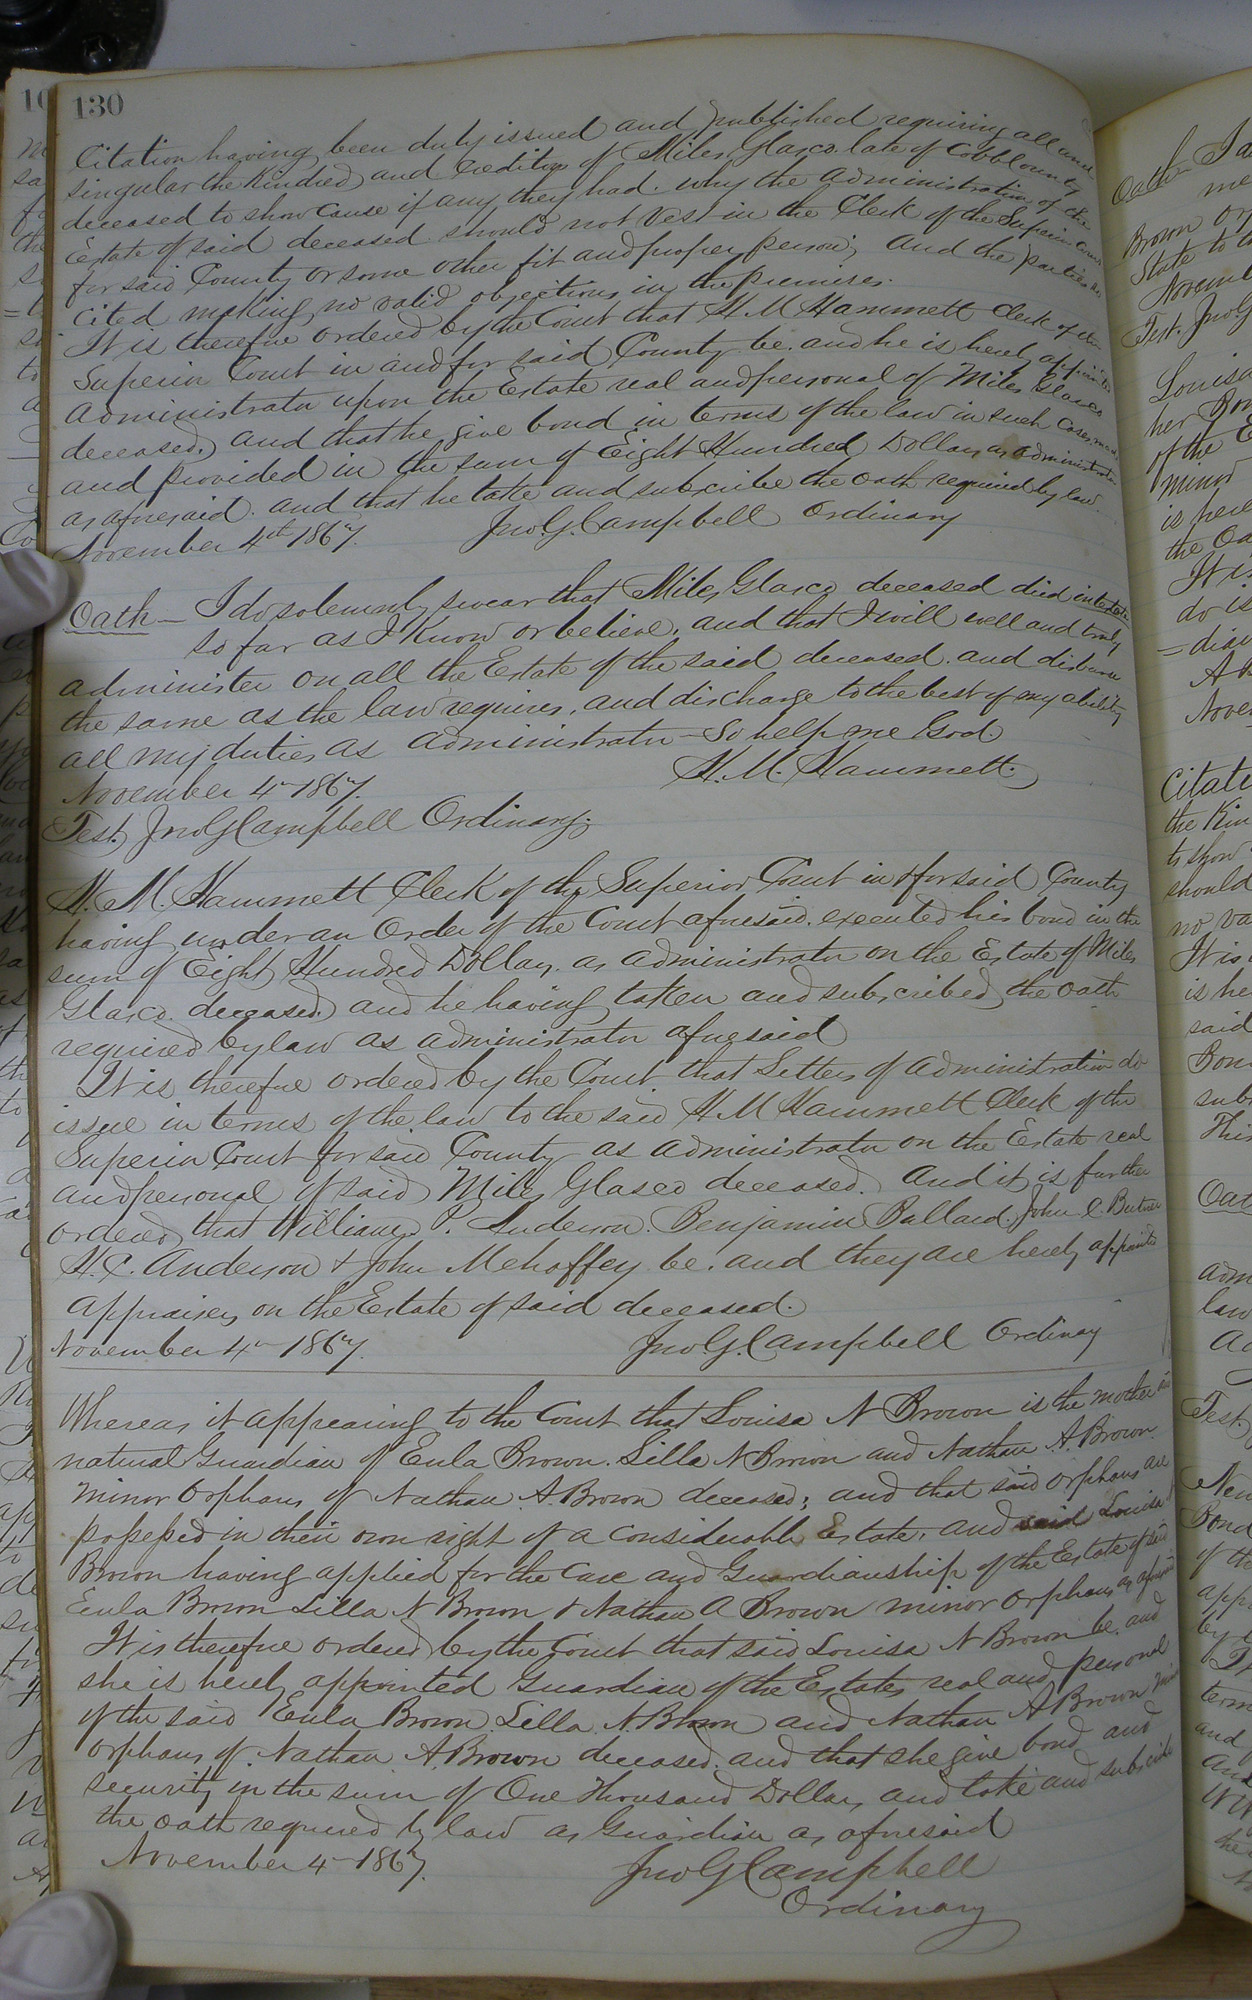 130
Citation having been duly issued and published requiring all and
singular the Kindred and Creditors of Miles Glasco late of Cobb County
deceased to show cause if any they had. why the administration of the
Estate of said deceased should not vest in the Clerk of the Superior Court
for said County or some other fit and proper person; and the parties so
cited making no valid objections in the premises.
It is therefore ordered by the Court that H. M Hammett Clerk of the
Superior Court in and for said County be. and he is hereby appointed
administrator upon the Estate real and personal of Miles Glasco
deceased, and that he give bond in terms of the law in such cases made
and provided in the sum of Eight Hundred Dollars as administrator
as aforesaid. and that he take and subscribe the oath required by law.
November 4th 1867. Jno. G. Campbell Ordinary
Oath – I do solemnly swear that Miles Glasco deceased died intestate
so far as I Know or believe, and that I will well and truly
administer on all the Estate of the said deceased. and disburse
the same as the law requires, and discharge to the best of my ability
all my duties as administrator – So help me God.
November 4th 1867. H. M. Hammett.
Test. Jno G Campbell Ordinary.
H. M. Hammett Clerk of the Superior Court in & for said County
having under an Order of the Court aforesaid. executed his bond in the
sum of Eight Hundred Dollars. as administrator on the Estate of Miles
Glasco. deceased. and he having taken and subscribed the oath
required by law as administrator aforesaid
It is therefore ordered by the Court that Letters of administration do
issue in terms of the law to the said H M Hammett Clerk of the
Superior Court for said County as administrator on the Estate real
and personal of said Miles Glasco deceased. And it is further
ordered that William P. Anderson. Benjamin Ballard. John C. Butner
H. C. Anderson & John Mehaffey be. and they are hereby appointed
appraisers on the Estate of said deceased.
November 4th 1867. Jno. G. Campbell Ordinary
Whereas it appearing to the Court that Louisa N Brown is the mother and
natural Guardian of Eula Brown. Lilla N Brown and Nathan A. Brown
minor orphans of Nathan A. Brown deceased; and that said orphans are
possessed in their own right of a considerable Estate, and said Louisa
Brown having applied for the Care and Guardianship of the Estate of said
Eula Brown Lilla N Brown & Nathan A Brown minor orphans as aforesaid
It is therefore ordered by the Court that said Louisa N Brown be. and
she is hereby appointed Guardian of the Estates real and personal
of the said Eula Brown. Lilla N. Brown and Nathan A Brown minor
orphans of Nathan A. Brown deceased. and that she give bond and
security in the sum of One Thousand Dollars, and take and subscribe
the oath required by law as Guardian as aforesaid
November 4th 1867. Jno G Campbell
Ordinary